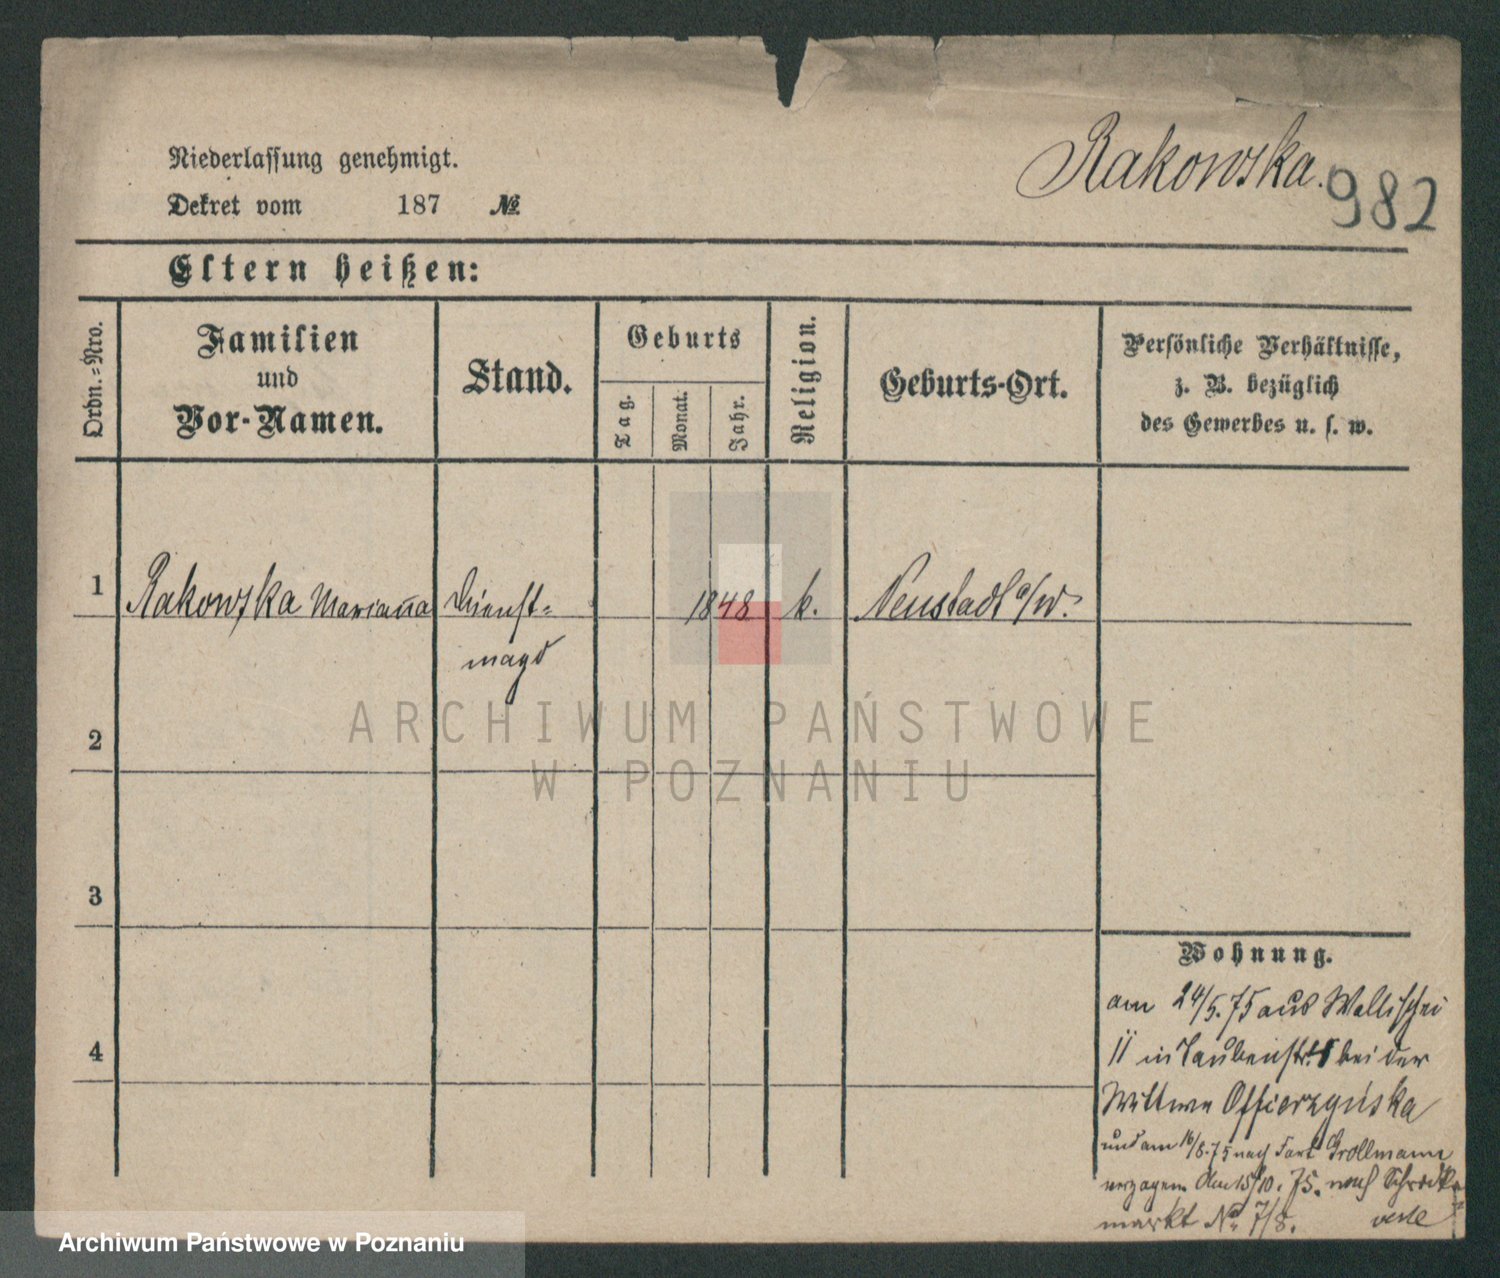 Rakowska.
982
Niederlassung genehmigt.
Dekret vom 187 №
Eltern heißen:
Ordn.-Nro.
Familien
und
Vor-Namen.
Stand.
Geburts
Tag.
Monat.
Jahr.
Religion.
Geburts-Ort.
Persönliche Verhältnisse,
z. B. bezüglich
des Gewerbes u. s. w.
1 Rakowska Marianna Dienst= 1848 k. Neustadt a/W.
magd
2
3
4
Wohnung.
am 24/5. 75 aus Wallischei
11 in Taubenstr. bei der
Wittwe Offierzyńska
und am 16/8. 75 nach Fort Grollmann
verzogen. Am 15/10. 75. nach
markt No 7/8. verte
ARCHIWUM PAŃSTWOWE
W POZNANIU
Archiwum Państwowe w Poznaniu